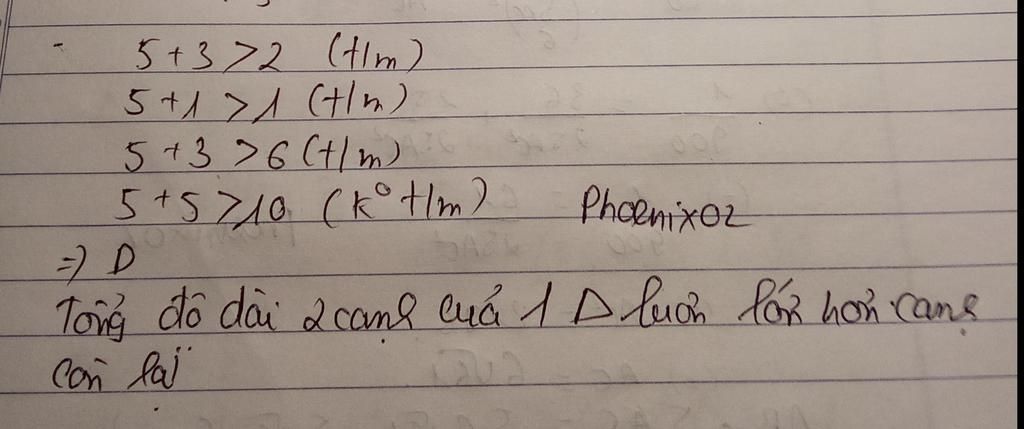 - 5 + 3 > 2 (t/m)
5 + 1 > 1 (t/m)
5 + 3 > 6 (t/m)
5 + 5 > 10 (k° t/m) Phoenixoz
=> D
Tổng độ dài 2 cạnh của 1 Δ luôn lớn hơn cạnh
còn lại